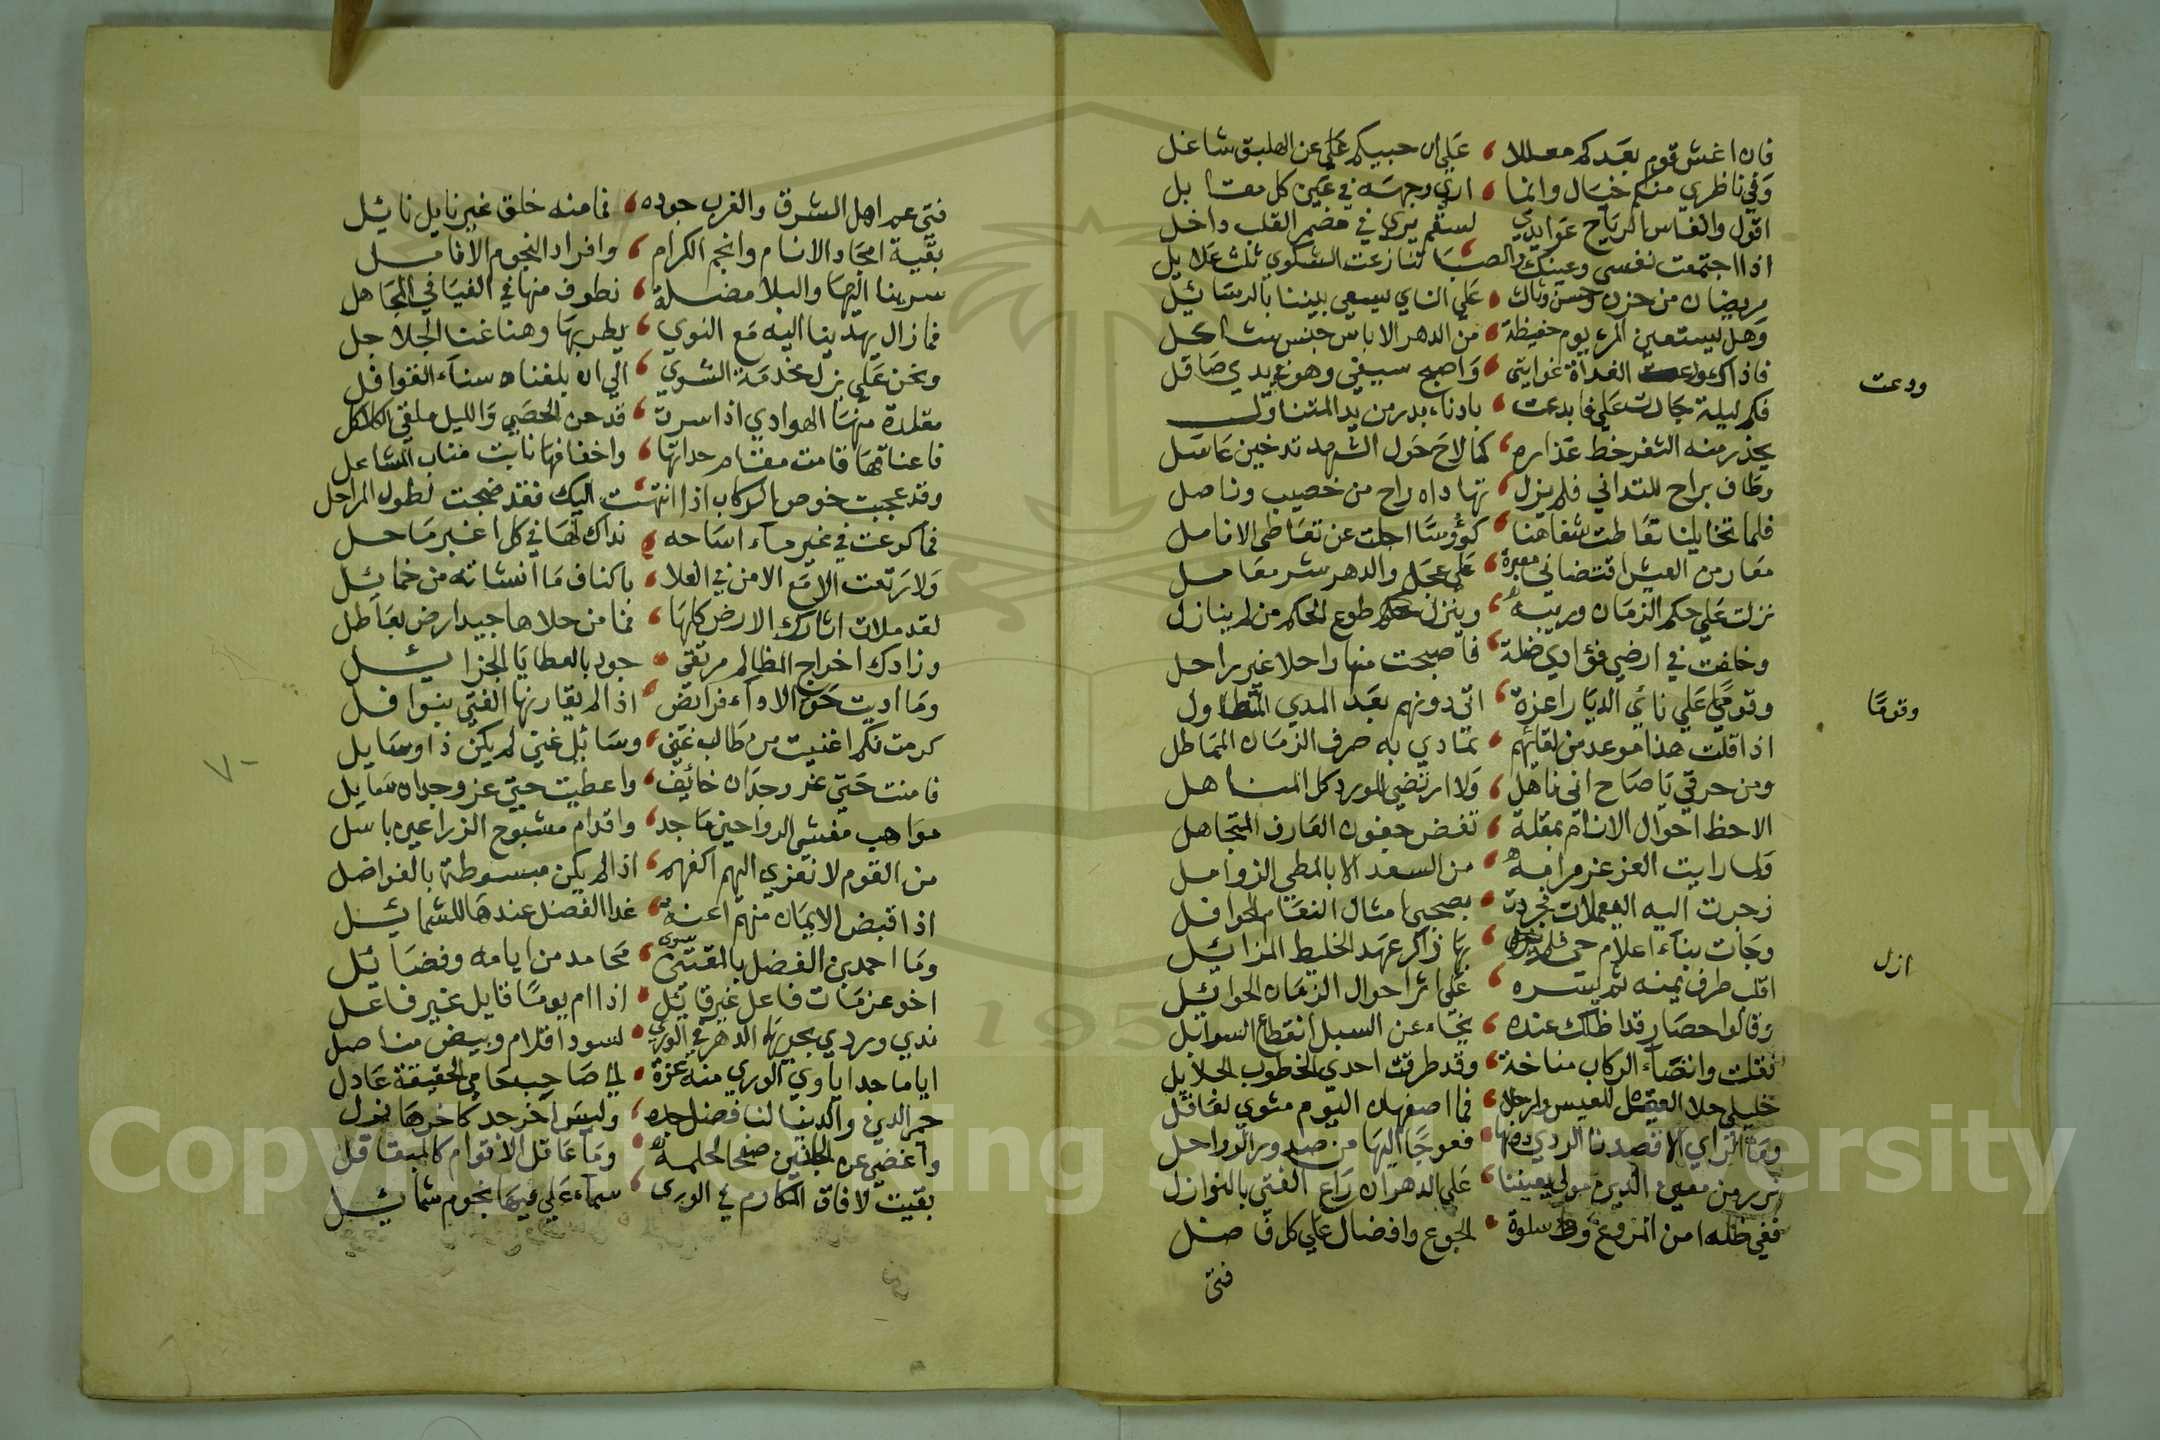 فان اغش قوم بعدكم معللا ، علي ان حبيكم علي عن الملبق شاغل
وفي ناظري منكم خيال وانما ، اري وجهه في عين كل مقابل
اقول وانفاس الرياح عوايدي لسقم يري في مضمر القلب داخل
اذا اجتمعت نفسي وعينك والصبا ، تنازعت الشكوي ثلث علايل
مريضان من حزن وحسن وثالث ، علي الناي يسعي بيننا بالرسائيل
وهل يستعين المرء يوم حفيظة ، من الدهر الا باس جنس مشاكل
فاذاكـ الغداة غوايتي ، واصبح سيفي وهو في يدي صاقل
ودعت
فكم ليلة جادت علي فابدعت ، بادناء بدر من يد المتناول
يحذر منه الثغر خط عذاره ، كما لاح حول الشهد تدخين عاسل
وطاف براح للتداني فلم يزل ، تهاداه راح من خصيب وناصل
فلما تخايلنا تعاطت شفاهنا ، كؤوسا اجلت عن تعاطي الانامل
معار من العيش اقتضاني معيره ، علي عجل والدهر شر معامل
نزلت علي حكم الزمان وريبه ، وينزل طوع الحكم من لم ينازل
وخلفت في ارضي فؤادي ضلة ، فاصبحت منها راحلا غير راحل
وقومي علي نائي الديار اعزة ، اتي دونهم بعد المدي المتطاول
وقومًا
اذا قلت هذا موعد من لقائهم ، تمادي به صرف الزمان المماطل
ومن حرقي يا صاح اني ناهل ، ولا ارتضي المورد كل المناهل
الاحظ احوال الانام بمقلة ، تغض جفون العارف المتجاهل
ولما رايت العز عز مرامه ، من السعد الا بالمطي الزوامل
زجرت اليه اليعملات فجردت ، بصحبي امثال النعام الجوافل
وجات بناء اعلام حي فلم ، بها ذاكر عهد الخليط المزائيل
ازل
اقلب طرفي يمنه ثم يسره ، علي اثر احوال الزمان الحوائيل
وقالوا حصار قد اظلك عنده ، بخاء عن السبل انقطاع السوابل
فقلت وانضاء الركاب مناخة ، وقد طرقت احدي الخطوب الجلايل
خليلي حلا العقل للعيس وارحلا ، فما اصفهان اليوم مثوي لغافل
وما الراي الا قصدنا الري دونها ، فعوجا اليها من صدور الرواحل
نزر من معين الدين مولي يعيننا ، علي الدهر ان راع الفتي بالنوازل
ففي ظله امن المروع وسلوة ، لجوع وافضال علي كل فاضل
فتي
فتي عم اهل الشرق والغرب جوده ، فما منه خلق غير نايل نائيل
بقية امجاد الانام وانجم الكرام ، وافراد النجوم الافاضل
سرينا اليها والبلا مضلة ، نطوف منها في الفيافي المجاهل
فما زال يهدينا اليه مع النوي ، يطربها وهنا غنا الجلاجل
ونحن علي بزل مخدمة الشوي ، الي ان بلغناه سناء القوافل
مقلدة منها الهوادي اذا سرت ، قدحن الحصي والليل ملقي الكلاكل
فاعناقها قامت مقام حداتها ، واخفافها نابت مناب المشاعل
وقد عجبت خوص الركاب اذا انتهت ، اليك فقد ضجت لطول المراحل
فما كرعت في غير ماء اساحه ، نداك لها في كل اغبر ماحل
ولا رتعت الا مع الامن في العلا ، باكناف ما انشاته من خمائيل
لقد ملات اثارك الارض كلها ، فما من حلاها جيد ارض بعاطل
وزادك اخراج المظالم مرتقي ، جود بالعطايا الجزائيل
وما اديت حق الاداء فرائض ، اذا لم يقارنها الفتي بنوافل
كرمت فكم اغنيت من طالب غني ، وسائل غني لم يكن ذا وسايل
فامنت حتي عز وجدان خائف ، واعطيت حتي عز وجدان سايل
مواهب مغشي الرواحين ماجد ، واقدام مشبوح الذراعين باسل
من القوم لا نعزي اليهم اكفهم ، اذا لم يكن مبسوطة بالفواضل
اذا قبض الايمان منهم اعنة ، غدا الفضل عندها للشمائيل
وما احمد بن الفضل بالمقتني سوي ، محامد من ايامه وفضائيل
اخو عزمات فاعل غير قائيل ، اذا ام يوما قايل غير فاعل
ندي وردي يجريهما الدهر في الوري ، لسود اقلام وبيض مناصل
ايا ماجدا ياوي الوري منه عزة ، الي صاحب حامي الحقيقة عادل
حمر الدين والدنيا لنا فضل جده ، وليس اخر جد كاخر هازل
واغضي عن الجانين صفحا لحلمه ، وما عاقل الاقوام كالمتعاقل
بقيت لافاق المكارم في الوري ، سماء علي فيها نجوم شمائيل
٧٠
Copyright © King Saud University